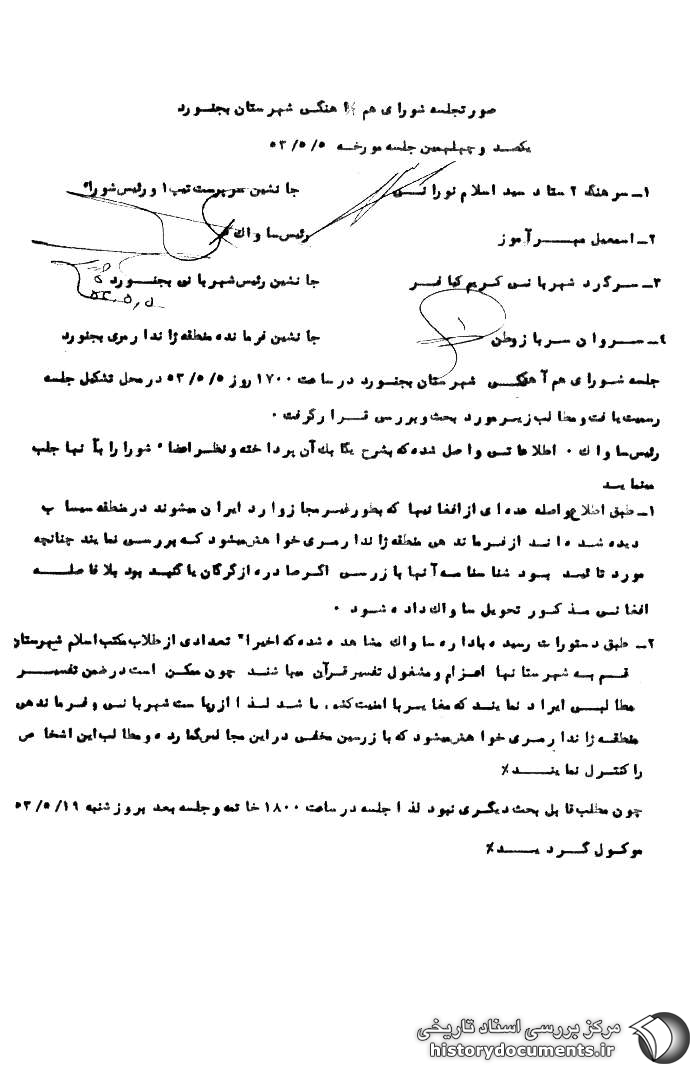 صورتجلسه شورای هم آهنگی شهرستان بجنورد
یکصد و چهلمین جلسه مورخه ۵۳/۵/۵
۱ـ سرهنگ ۲ ستاد سید اسلام نورانی جانشین سرپرست تیپ ۱ و رئیس شورا
۲ـ اسمعیل مهرآموز رئیس ساواک
۳ـ سرگرد شهربانی کریم کیانفر جانشین رئیس شهربانی بجنورد
۴ـ سروان سرباز وطن جانشین فرمانده منطقه ژاندارمری بجنورد
جلسه شورای هم آهنگی شهرستان بجنورد در ساعت ۱۷۰۰ روز ۵۳/۵/۵ در محل تشکیل جلسه
رسمیت یافت و مطالب زیر مورد بحث و بررسی قرار گرفت ۰
رئیس ساواک ۰ اطلاعاتی واصل شده که بشرح یکایک آن پرداخته و نظر اعضاء شورا را بآنها جلب
مینماید
۱ـ طبق اطلاع واصله عده ای از افغانیها که بطور غیر مجاز وارد ایران میشوند در منطقه میساب
دیده شده اند از فرماندهی منطقه ژاندارمری خواهش میشود که بررسی نمایند چنانچه
مورد تائید بود شناسنامه آنها بازرسی اگر صادره از گرگان یا گنبد بود بلافاصله
افغانی مذکور تحویل ساواک داده شود ۰
۲ـ طبق دستورات رسیده باداره ساواک مشاهده شده که اخیرا" تعدادی از طلاب مکتب اسلام شهرستان
قم به شهرستانها اعزام و مشغول تفسیر قرآن میباشند چون ممکن است در ضمن تفسیر
مطالبی ایراد نمایند که مغایر با امنیت کشور باشد لذا از ریاست شهربانی و فرماندهی
منطقه ژاندارمری خواهش میشود که بازرسین مخفی در این مجالس گمارده و مطالب این اشخاص
را کنترل نمایند٪
چون مطلب قابل بحث دیگری نبود لذا جلسه در ساعت ۱۸۰۰ خاتمه و جلسه بعد بروز شنبه ۵۳/۵/۱۹
موکول گردید٪
مرکز بررسی اسناد تاریخی
historydocuments.ir